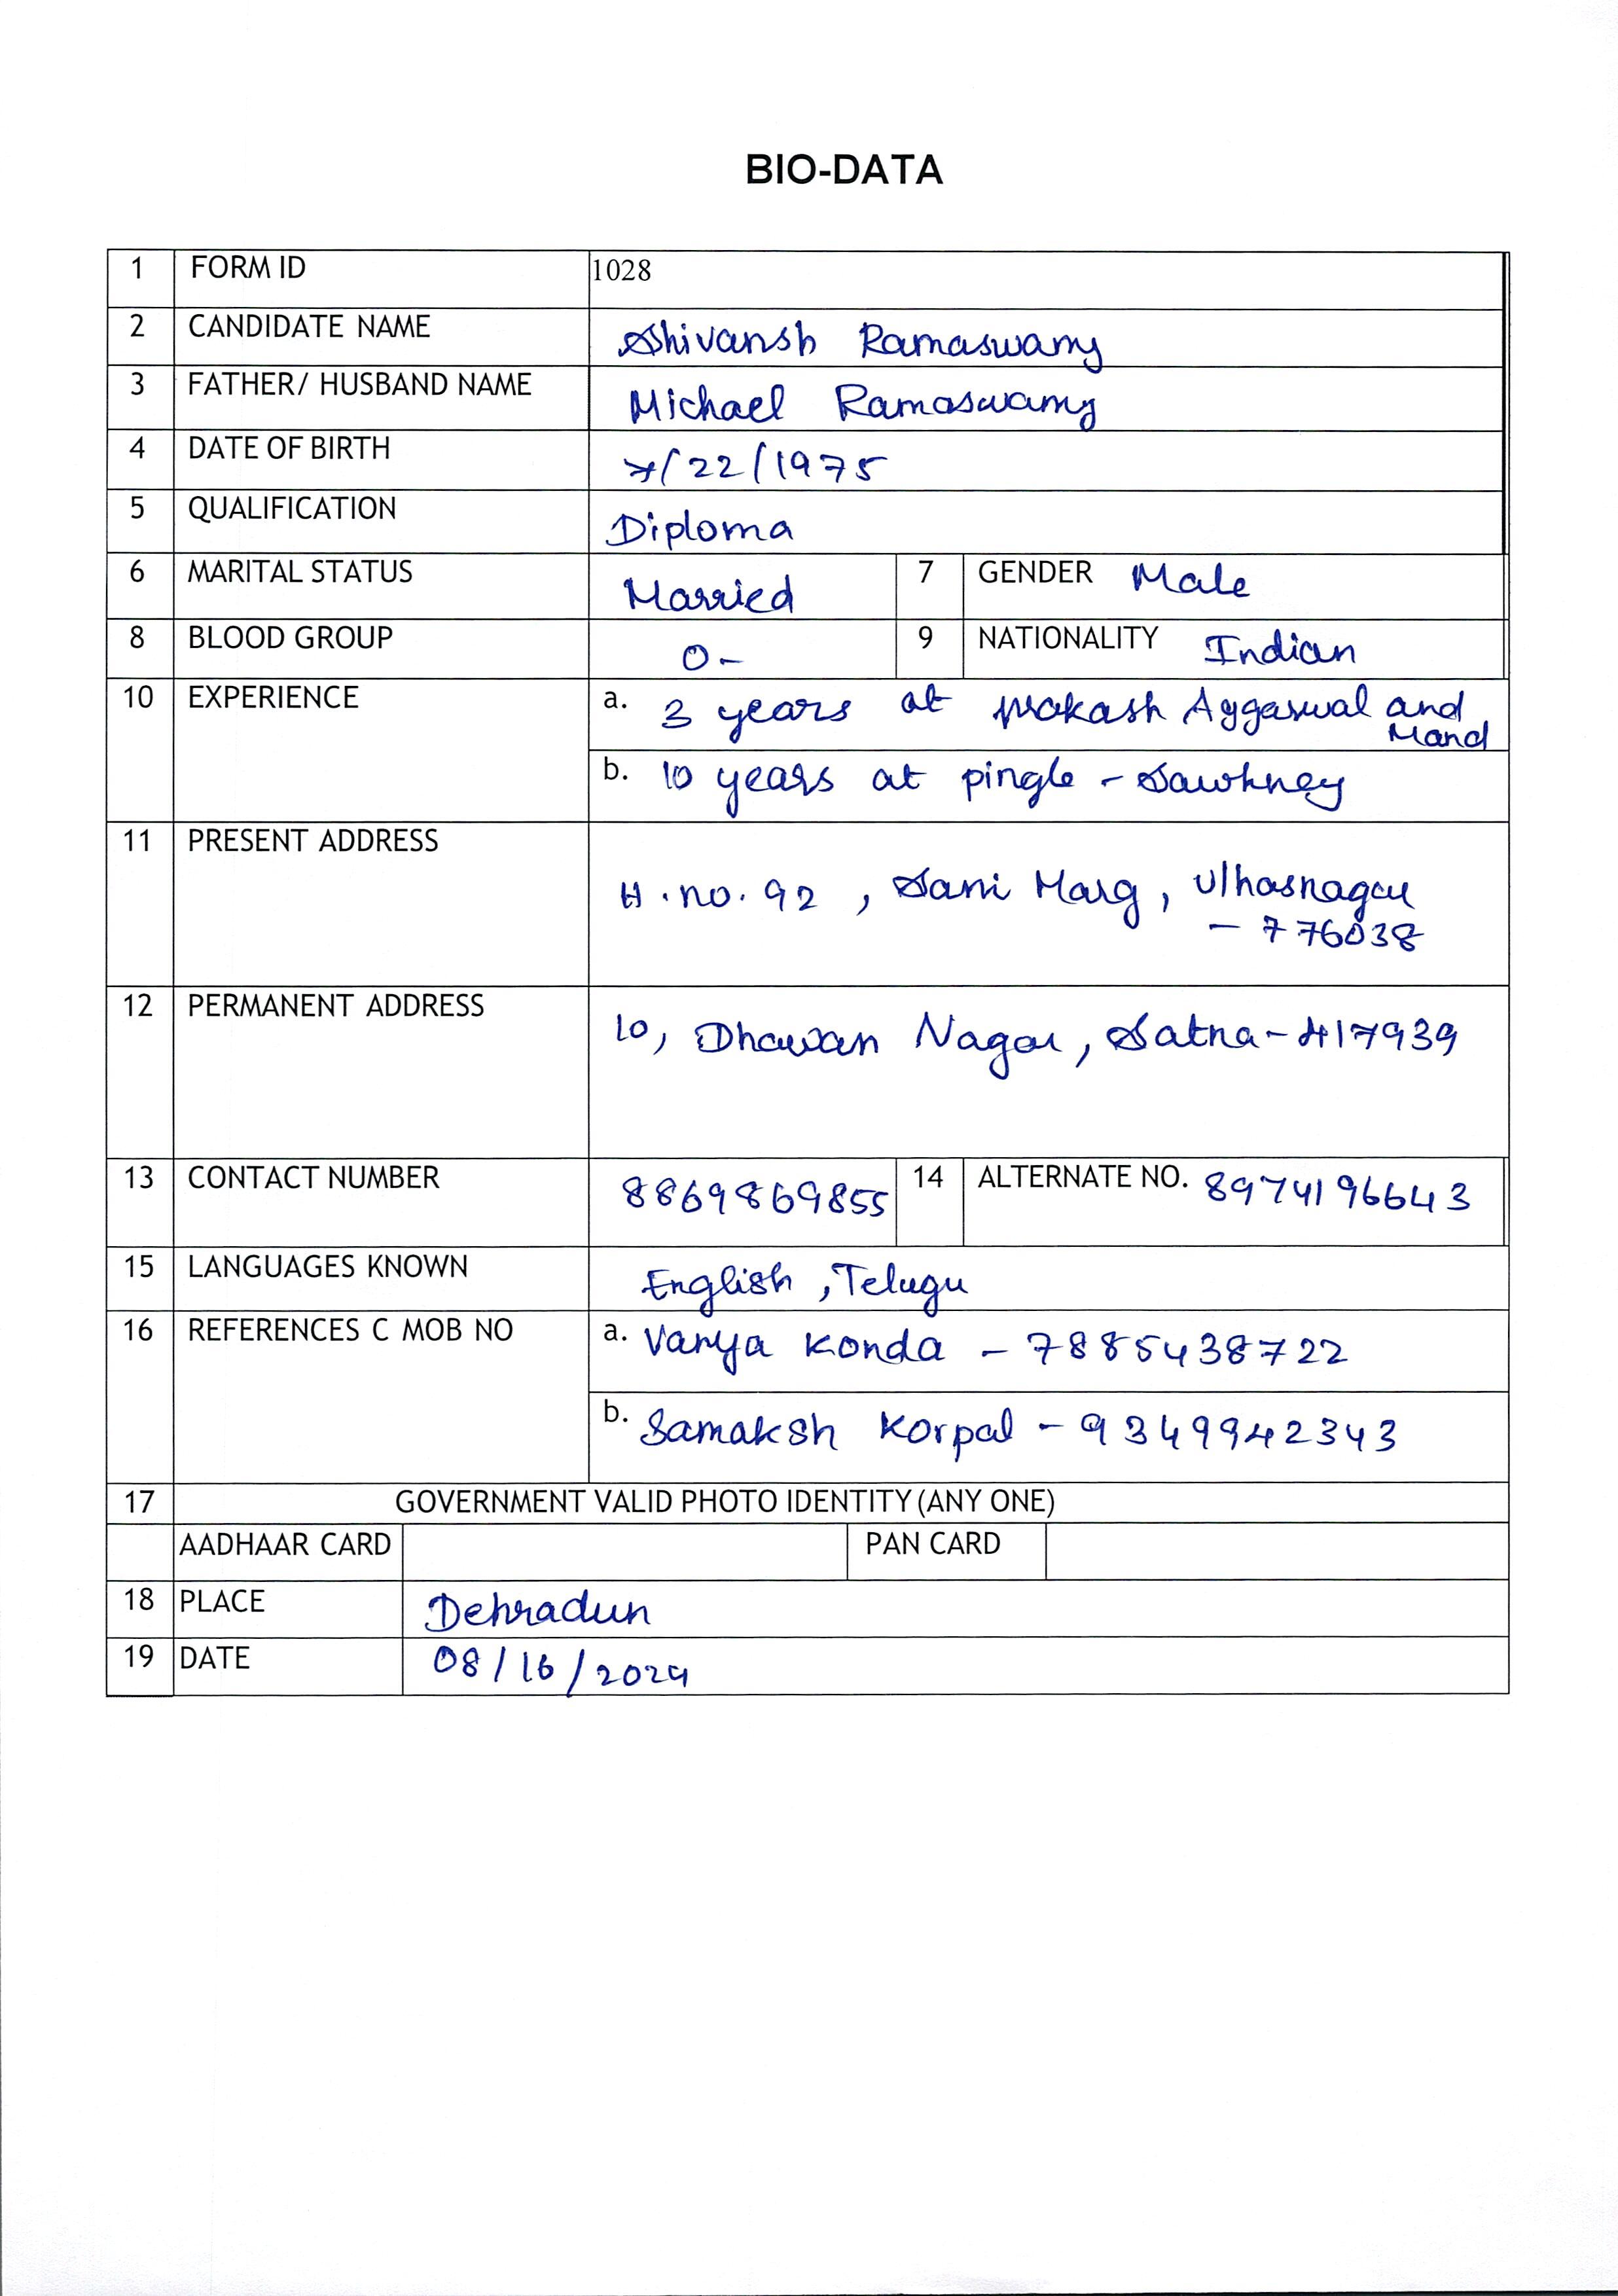 BIO-DATA
1 FORM ID 1028
2 CANDIDATE NAME Shivansh Ramaswamy
3 FATHER/ HUSBAND NAME Michael Ramaswamy
4 DATE OF BIRTH 7/22/1975
5 QUALIFICATION Diploma
6 MARITAL STATUS Married 7 GENDER Male
8 BLOOD GROUP O- 9 NATIONALITY Indian
10 EXPERIENCE a. 3 years at prakash Aggarwal and
Mand
b. 10 years at pingle - Sawhney
11 PRESENT ADDRESS
H.no. 92, Sani Marg, Ulhasnagar
- 776038
12 PERMANENT ADDRESS 10, Dhawan Nagar, Satna-417939
13 CONTACT NUMBER 8869869855 14 ALTERNATE NO. 8974196643
15 LANGUAGES KNOWN English, Telugu
16 REFERENCES C MOB NO a. Vanya Konda - 7885438722
b. Samaksh Korpal - 9349942343
17 GOVERNMENT VALID PHOTO IDENTITY (ANY ONE)
AADHAAR CARD PAN CARD
18 PLACE Dehradun
19 DATE 08/16/2024